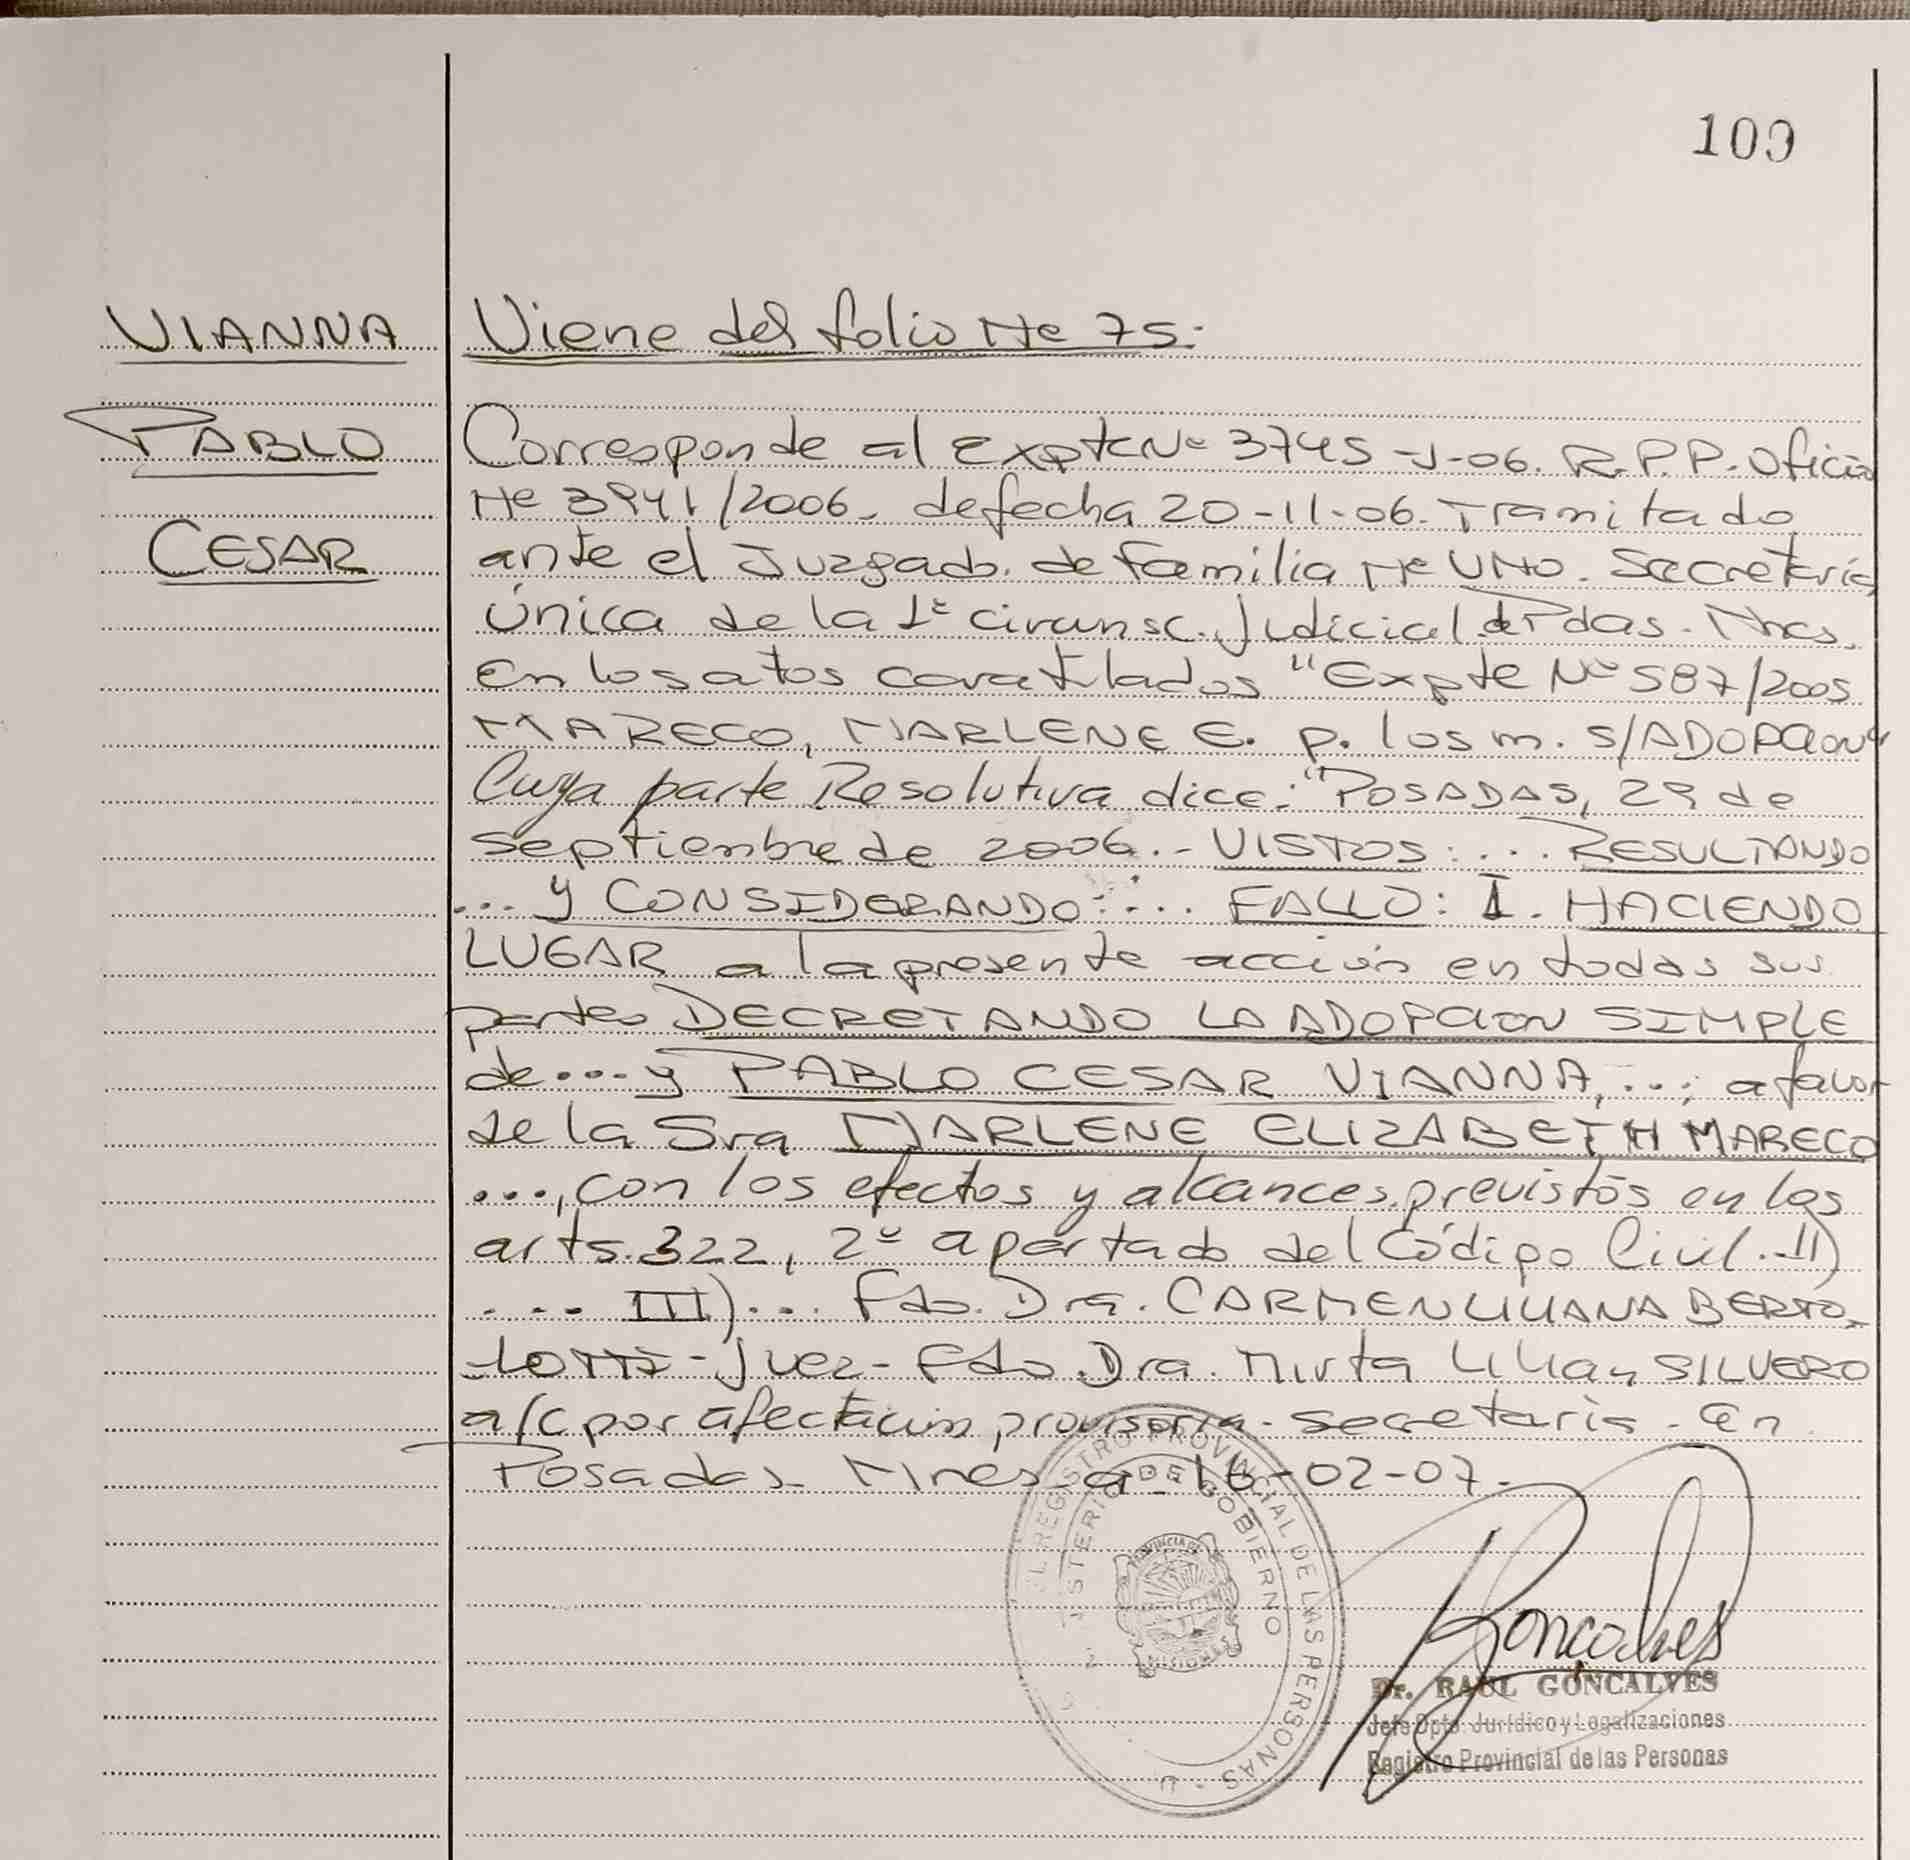 100
VIANNA
PABLO
CESAR
Viene del folio Nº 75:
Corresponde al Expte Nº 3745-J-06. R.P.P. Oficio
Nº 3941/2006. de fecha 20-11-06. Tramitado
ante el Juzgado de Familia Nº UNO. Secretaría
Única de la 1º Circunsc. Judicial de Pdas. Mnes.
En los atos caratulados "Expte Nº 587/2005
MARECO, MARLENE E. p. los m. S/ADOPCION"
Cuya parte Resolutiva dice: "POSADAS, 29 de
Septiembre de 2006.- VISTOS: ... RESULTANDO
... y CONSIDERANDO: ... FALLO: I. HACIENDO
LUGAR a la presente acción en todas sus
partes DECRETANDO LA ADOPCION SIMPLE
de ... y PABLO CESAR VIANNA, ...; a favor
de la Sra MARLENE ELIZABETH MARECO
..., con los efectos y alcances previstos en los
arts. 322, 2º apartado del Código Civil. II)
... III) ... Fdo. Dra. CARMEN LILIANA BERTO-
LOTTI - Juez - Fdo. Dra. Mirta Lilian SILVERO
a/c por afectación provisoria - Secretaria - En
Posadas Mnes a 16-02-07.
REGISTRO PROVINCIAL DE LAS PERSONAS
DE GOBIERNO
PROVINCIA DE
Goncalves
Dr. RAUL GONCALVES
Jefe Dpto. Jurídico y Legalizaciones
Registro Provincial de las Personas